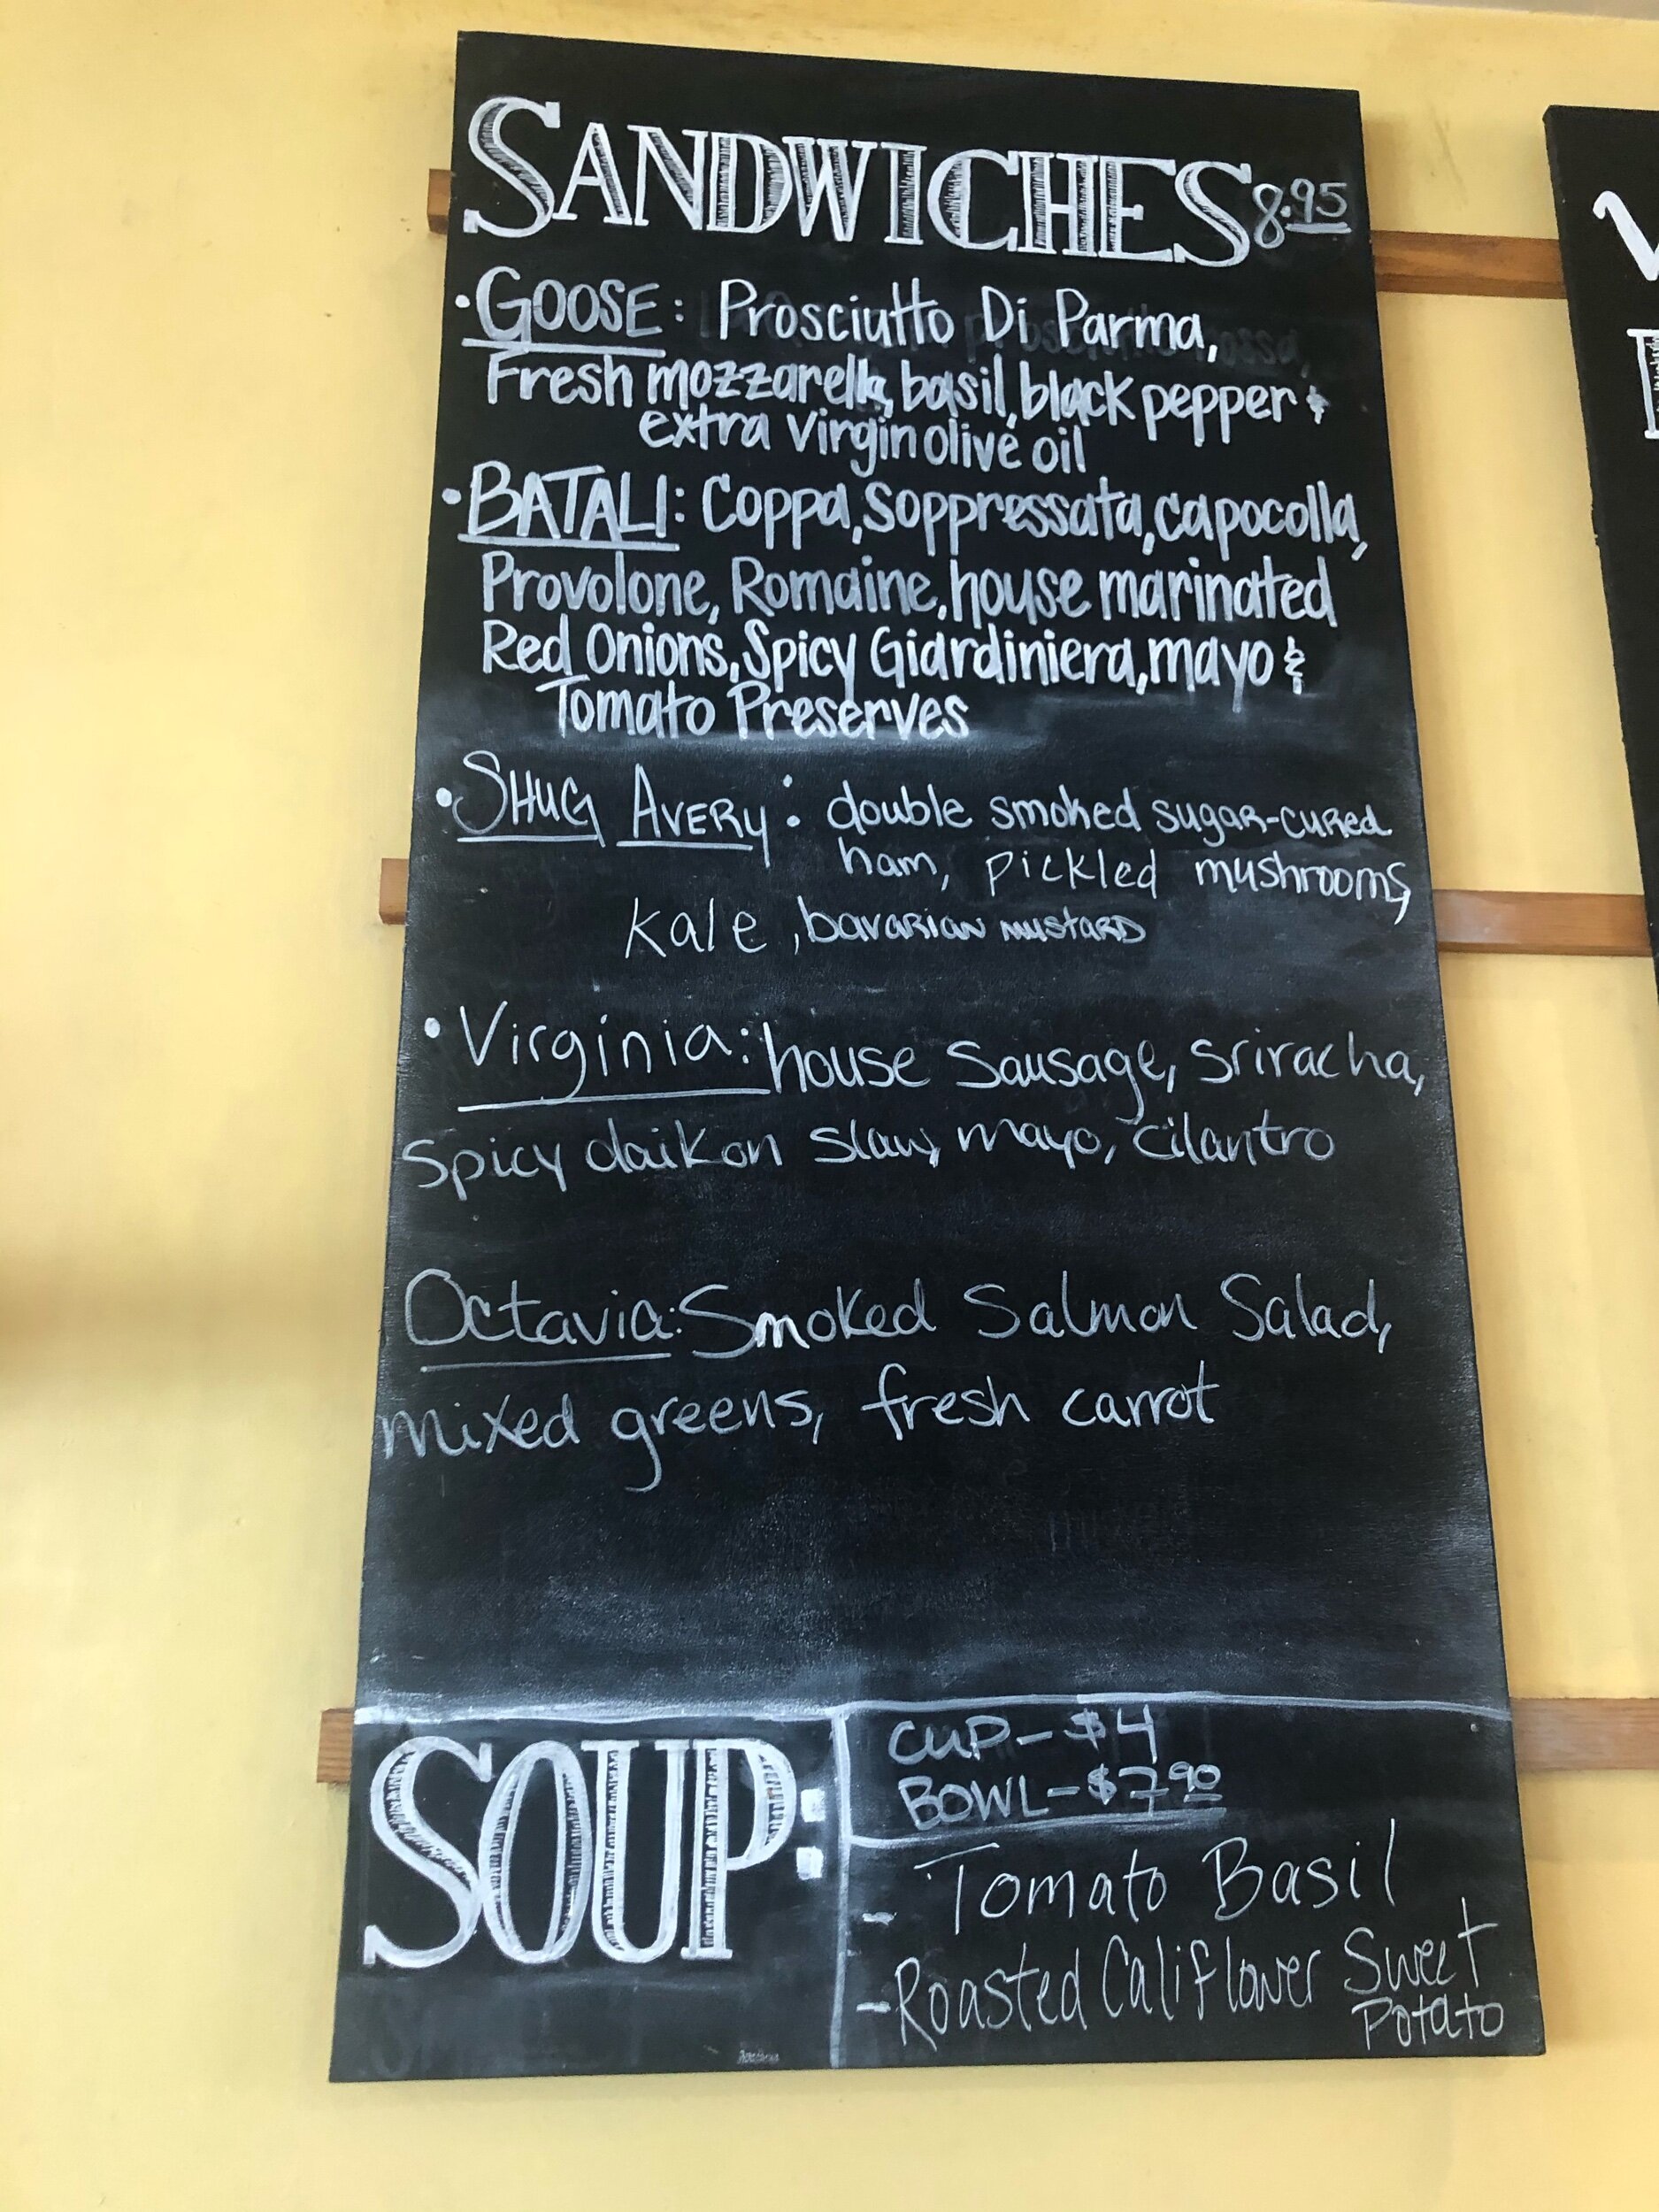 SANDWICHES 8.95
• GOOSE: Prosciutto Di Parma,
Fresh mozzarella, basil, black pepper &
extra virgin olive oil
• BATALI: Coppa, Soppressata, capocolla,
Provolone, Romaine, house marinated
Red Onions, Spicy Giardiniera, mayo &
Tomato Preserves
• SHUG AVERY: double smoked sugar-cured
ham, pickled mushrooms,
kale, bavarian mustard
• Virginia: house Sausage, sriracha,
Spicy daikon slaw, mayo, cilantro
Octavia: Smoked Salmon Salad,
mixed greens, fresh carrot
SOUP:
CUP - $4
BOWL - $7.90
- Tomato Basil
- Roasted Califlower Sweet
Potato